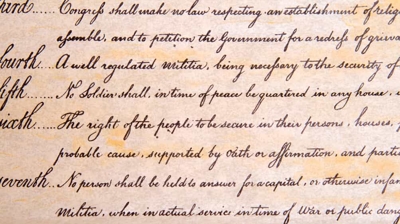 hird ...... Congress shall make no law respecting an establishment of relig
assemble, and to petition the Government for a redress of grieva
ourth.. A well regulated Militia, being necessary to the security of
ifth ..... No Soldier shall, in time of peace be quartered in any house,
ixth ..... The right of the people to be secure in their persons, houses,
probable cause, supported by Oath or affirmation, and parti
eventh.. No person shall be held to answer for a capital, or otherwise infam
Militia, when in actual service in time of War or public dang